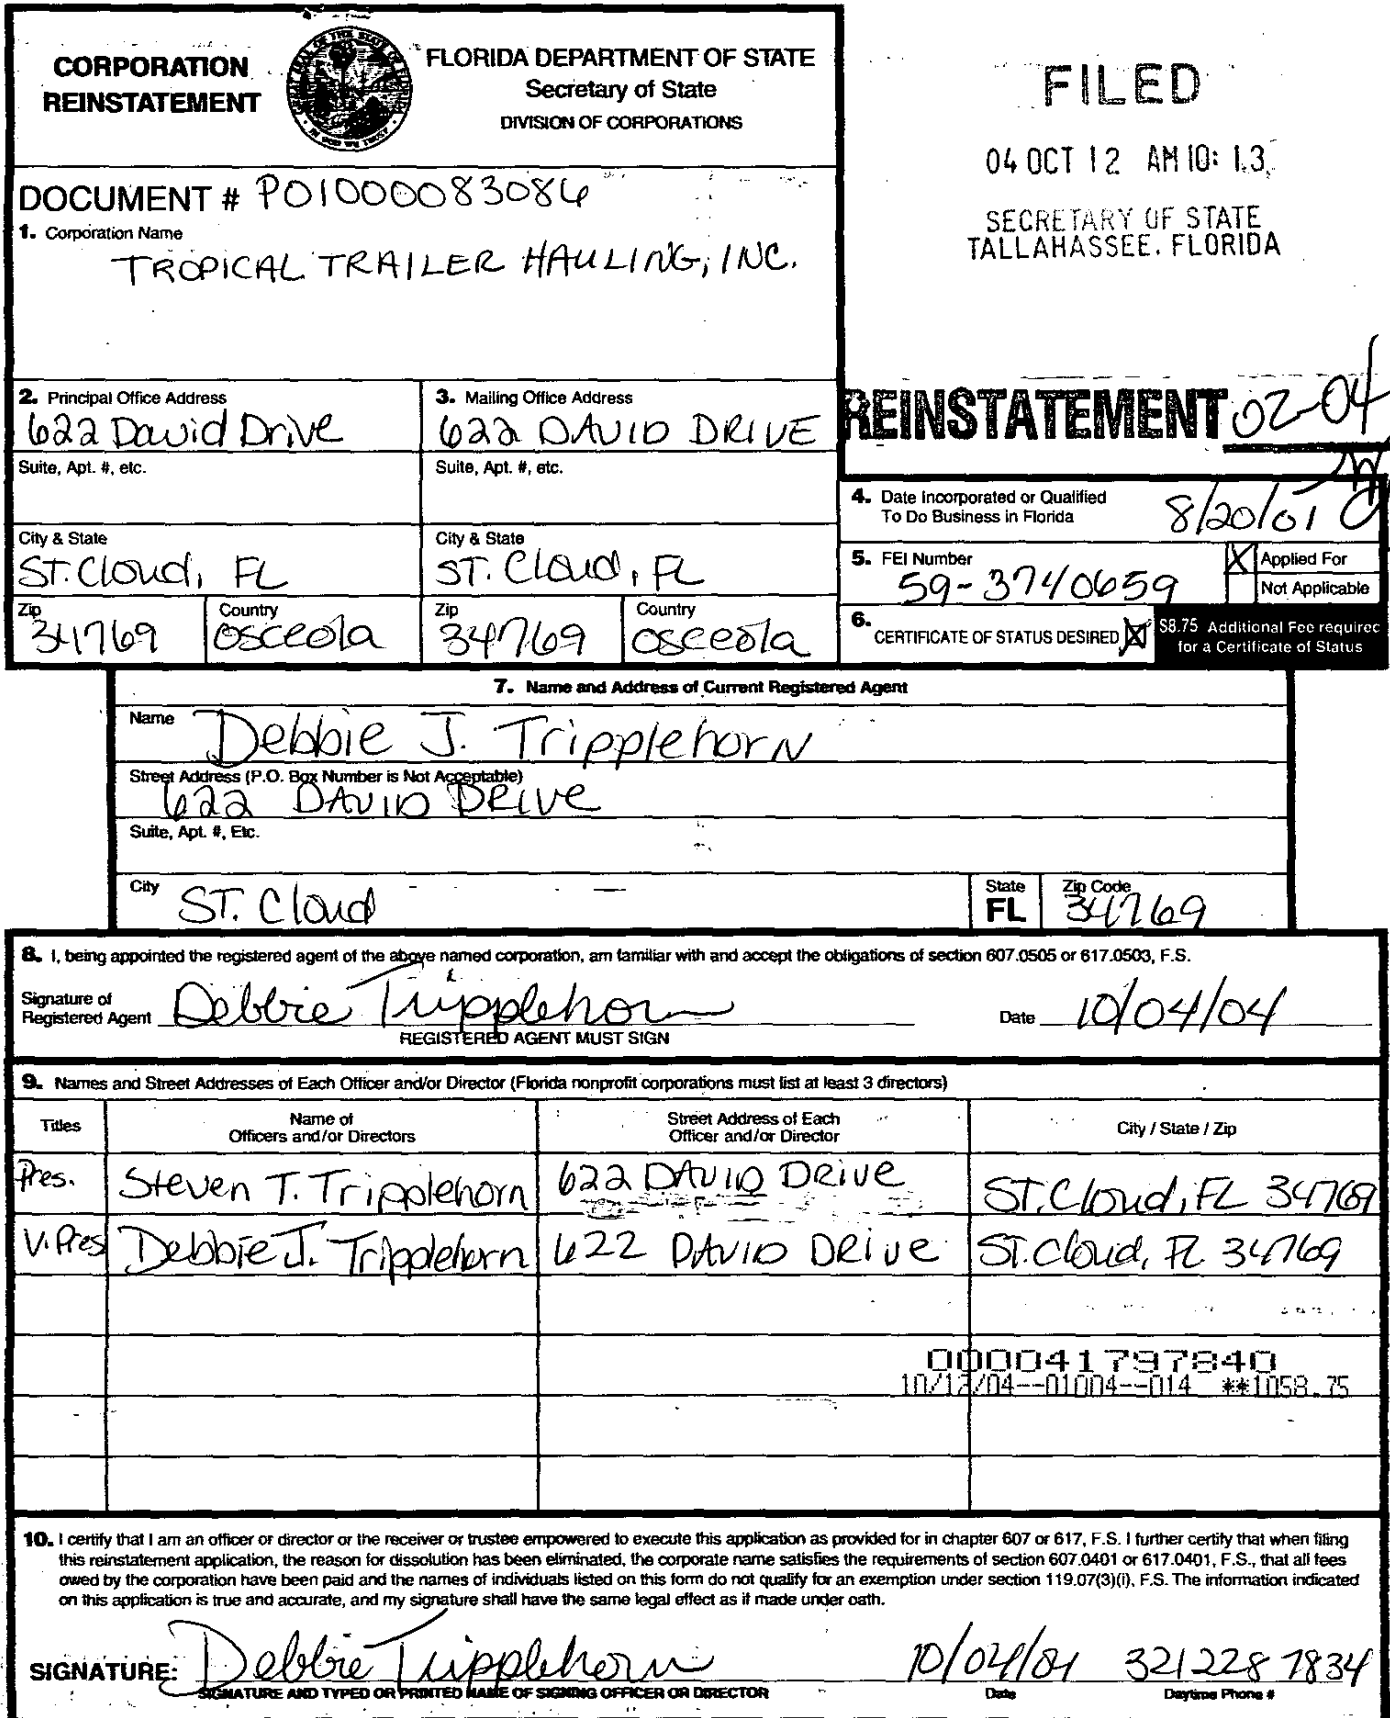 CORPORATION
REINSTATEMENT
FLORIDA DEPARTMENT OF STATE
Secretary of State
DIVISION OF CORPORATIONS
FILED
04 OCT 12 AM 10: 13
SECRETARY OF STATE
TALLAHASSEE, FLORIDA
DOCUMENT # P01000083086
1. Corporation Name
TROPICAL TRAILER HAULING, INC.
REINSTATEMENT 02-04
2. Principal Office Address
622 David Drive
3. Mailing Office Address
622 DAVID DRIVE
Suite, Apt. #, etc.
Suite, Apt. #, etc.
City & State
ST. Cloud, FL
City & State
ST. Cloud, FL
Zip
34769
Country
osceola
Zip
34769
Country
osceola
4. Date Incorporated or Qualified
To Do Business in Florida
8/20/01
5. FEI Number
59-3740659
X Applied For
Not Applicable
6. CERTIFICATE OF STATUS DESIRED X
$8.75 Additional Fee required
for a Certificate of Status
7. Name and Address of Current Registered Agent
Name
Debbie J. Tripplehorn
Street Address (P.O. Box Number is Not Acceptable)
622 DAVID DRIVE
Suite, Apt. #, Etc.
City
ST. Cloud
State
FL
Zip Code
34769
8. I, being appointed the registered agent of the above named corporation, am familiar with and accept the obligations of section 607.0505 or 617.0503, F.S.
Signature of
Registered Agent Debbie Tripplehorn
Date 10/04/04
REGISTERED AGENT MUST SIGN
9. Names and Street Addresses of Each Officer and/or Director (Florida nonprofit corporations must list at least 3 directors)
Titles
Name of
Officers and/or Directors
Street Address of Each
Officer and/or Director
City / State / Zip
Pres. Steven T. Tripplehorn 622 DAVID DRIVE ST. Cloud, FL 34769
V. Pres Debbie J. Tripplehorn 622 DAVID DRive ST. Cloud, FL 34769
000041797840
10/12/04--01004--014 **1058.75
10. I certify that I am an officer or director or the receiver or trustee empowered to execute this application as provided for in chapter 607 or 617, F.S. I further certify that when filing
this reinstatement application, the reason for dissolution has been eliminated, the corporate name satisfies the requirements of section 607.0401 or 617.0401, F.S., that all fees
owed by the corporation have been paid and the names of individuals listed on this form do not qualify for an exemption under section 119.07(3)(i), F.S. The information indicated
on this application is true and accurate, and my signature shall have the same legal effect as if made under oath.
SIGNATURE: Debbie Tripplehorn 10/04/04 321 228 7834
SIGNATURE AND TYPED OR PRINTED NAME OF SIGNING OFFICER OR DIRECTOR
Date
Daytime Phone #